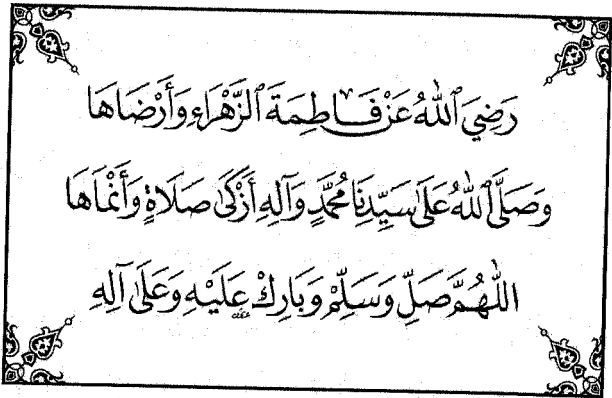 رَضِيَ ٱللَّهُ عَنْ فَاطِمَةَ ٱلزَّهْرَاءِ وَأَرْضَاهَا
وَصَلَّى ٱللَّهُ عَلَى سَيِّدِنَا مُحَمَّدٍ وَآلِهِ أَزْكَى صَلَاةٍ وَأَنْمَاهَا
اللَّهُمَّ صَلِّ وَسَلِّمْ وَبَارِكْ عَلَيْهِ وَعَلَى آلِهِ